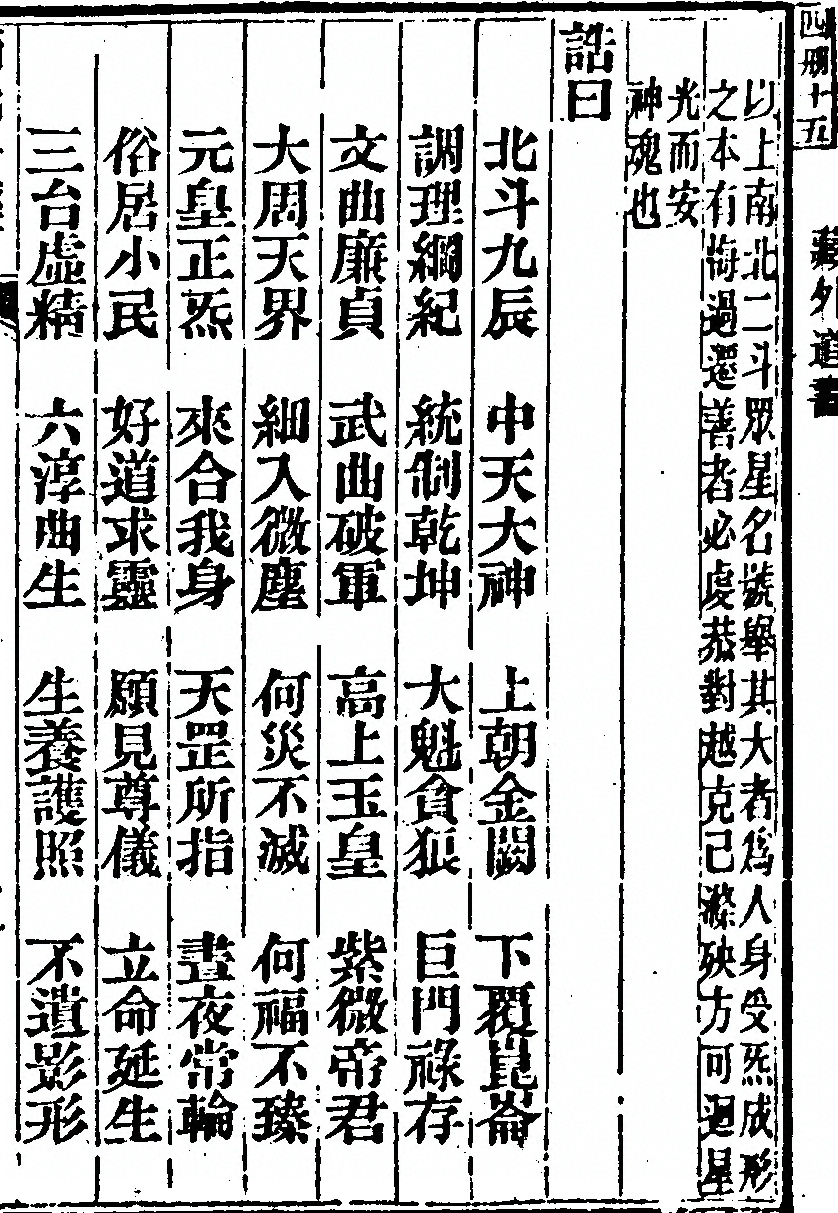 四册十五
藏外道書
以上南北二斗眾星名號舉其大者為人身受炁成形
之本有悔過遷善者必虔恭對越克己滌殃方可迴星
光而安
神魂也
誥曰
北斗九辰 中天大神 上朝金闕 下覆崑崙
調理綱紀 統制乾坤 大魁貪狼 巨門祿存
文曲廉貞 武曲破軍 高上玉皇 紫微帝君
大周天界 細入微塵 何災不滅 何福不臻
元皇正炁 來合我身 天罡所指 晝夜常輪
俗居小民 好道求靈 願見尊儀 立命延生
三台虛精 六淳曲生 生養護照 不遺影形